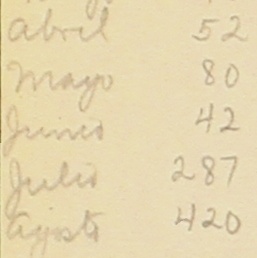 Abril 52
Mayo 80
Junio 42
Julio 287
Agosto 420